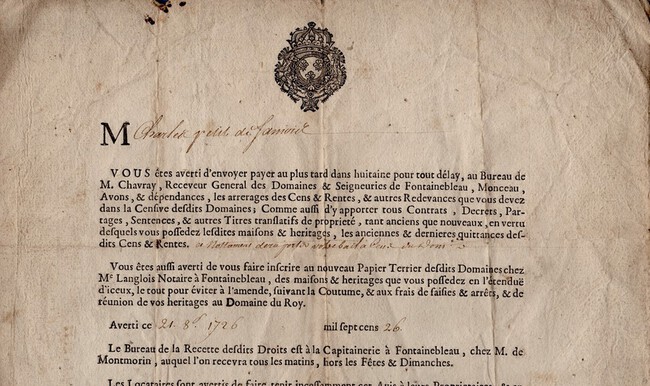 M Charles petit de
VOUS êtes averti d'envoyer payer au plus tard dans huitaine pour tout délay, au Bureau de
M. Chavray, Receveur General des Domaines & Seigneuries de Fontainebleau, Monceau,
Avons, & dépendances, les arrerages des Cens & Rentes, & autres Redevances que vous devez
dans la Censive desdits Domaines; Comme aussi d'y apporter tous Contrats, Decrets, Par-
tages, Sentences, & autres Titres translatifs de proprieté, tant anciens que nouveaux, en vertu
desquels vous possedez lesdites maisons & heritages, les anciennes & dernieres quittances des-
dits Cens & Rentes.
Vous êtes aussi averti de vous faire inscrire au nouveau Papier Terrier desdits Domaines chez
Me Langlois Notaire à Fontainebleau, des maisons & heritages que vous possedez en l'étenduë
d'iceux, le tout pour éviter à l'amende, suivant la Coutume, & aux frais de saisies & arrêts, & de
réunion de vos heritages au Domaine du Roy.
Averti ce 21 8e. 1726 mil sept cens 26.
Le Bureau de la Recette desdits Droits est à la Capitainerie à Fontainebleau, chez M. de
Montmorin, auquel l'on recevra tous les matins, hors les Fêtes & Dimanches.
Les Locataires sont avertis de faire tenir incessamment cet Avis à leurs Proprietaires, &